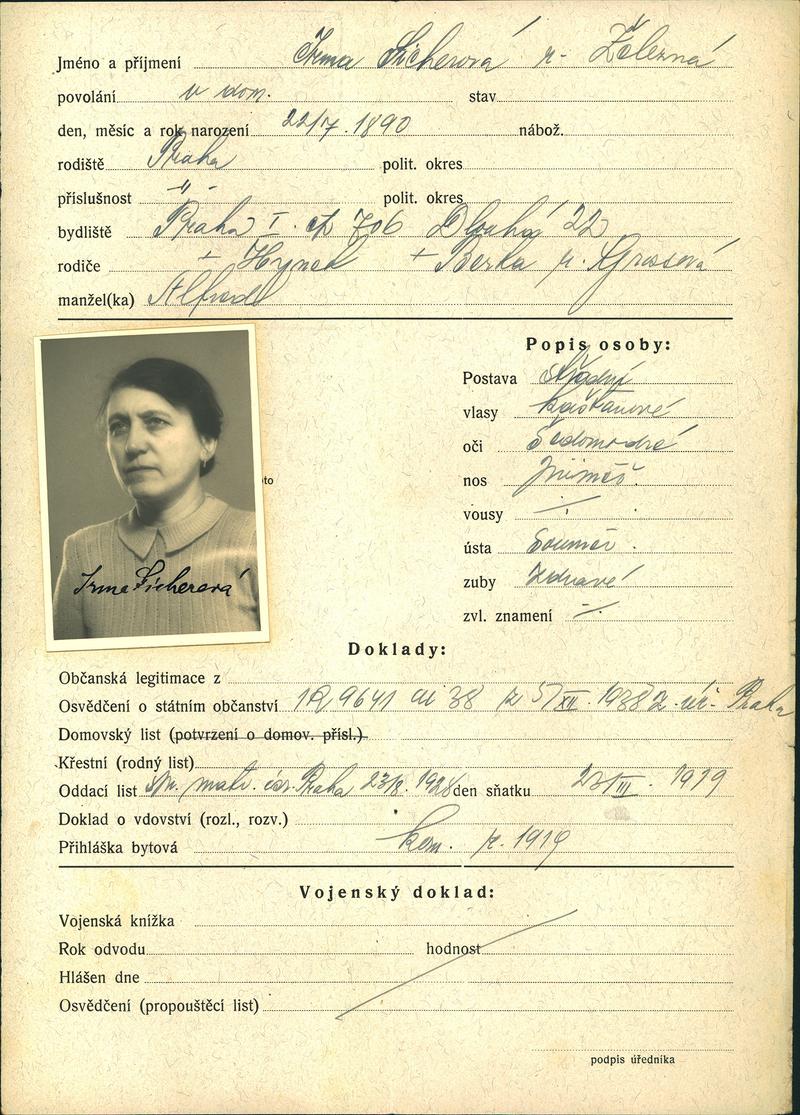 Jméno a příjmení Irma Sicherová r. Železná
povolání v dom. stav
den, měsíc a rok narození 22/7. 1890 nábož.
rodiště Praha polit. okres
příslušnost -"- polit. okres
bydliště Praha I. čp 706 Dlouhá 22
rodiče + Hynek + Berta r. Grossová
manžel(ka) Alfred
Popis osoby:
Postava střední
vlasy kaštanové
oči šedomodré
oto
nos přiměř.
vousy ÷
ústa souměr.
zuby zdravé
zvl. znamení ÷
Irma Sicherová
Doklady:
Občanská legitimace z
Osvědčení o státním občanství 9641 ai 38 z 5/XII. 1938 Z. úř. Praha
Domovský list (potvrzení o domov. přísl.)
Křestní (rodný list)
Oddací list matr. Praha 23/8. 1928 den sňatku 23/III. 1919
Doklad o vdovství (rozl., rozv.)
Přihláška bytová kom. r. 1919
Vojenský doklad:
Vojenská knížka
Rok odvodu hodnost
Hlášen dne
Osvědčení (propouštěcí list)
podpis úředníka